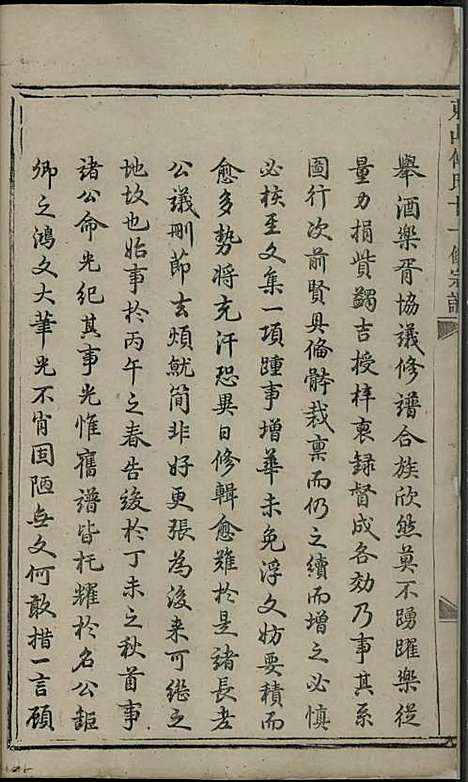 東山傅氏十一修宗譜
舉酒樂胥協議修譜合族欣然莫不踴躍樂從
量力捐貲蠲吉授梓衷録督成各効乃事其系
圖行次前賢具俻體裁稟而仍之續而增之必慎
必核至文集一項踵事增華未免浮文妨要積而
愈多勢將充汗恐異日修輯愈難於是諸長老
公議刪節去煩就簡非好更張為後来可継之
地故也始事於丙午之春告竣於丁未之秋首事
諸公命光紀其事光惟舊譜皆托耀於名公鉅
卿之鴻文大筆光不肖固陋無文何敢措一言顧